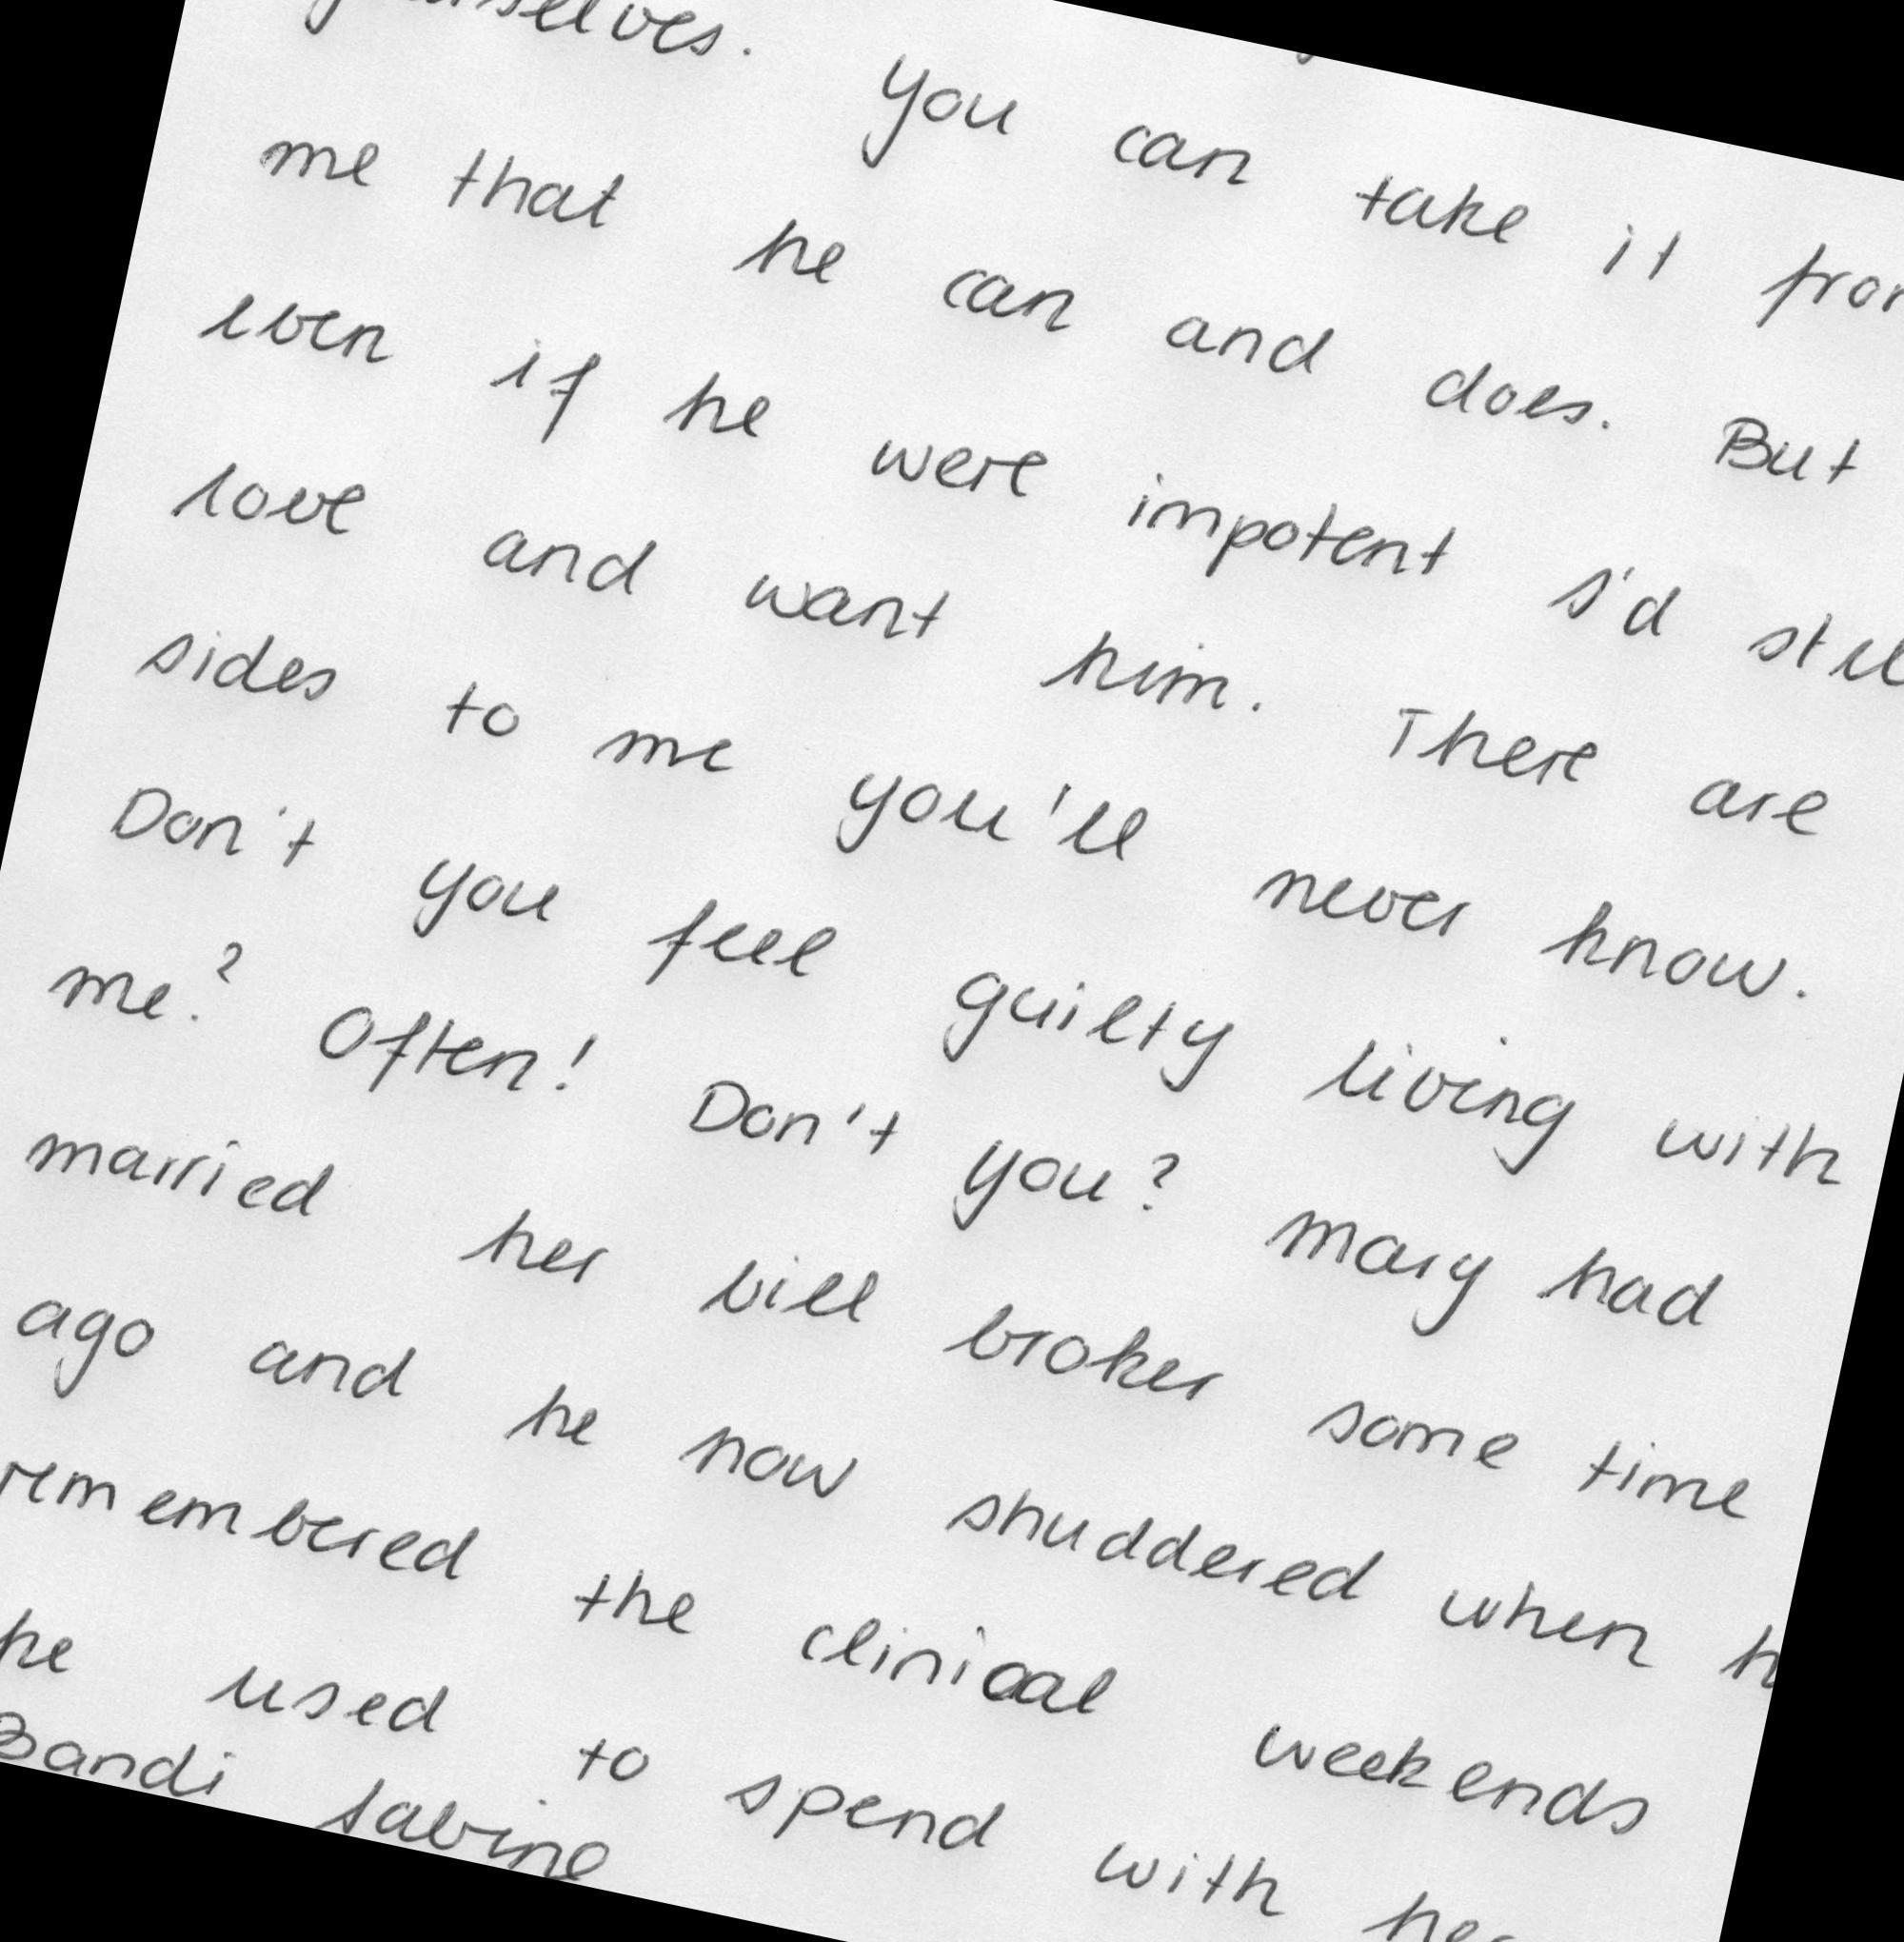 yourselves. You can take it from
me that he can and does. But
even if he were impotent I'd still
love and want him. There are
sides to me you'll never know.
Don't you feel guilty living with
me? Often! Don't you? Mary had
married her bill broker some time
ago and he now shuddered when
remembered the clinical weekends
he used to spend with her
Bandi Sabine